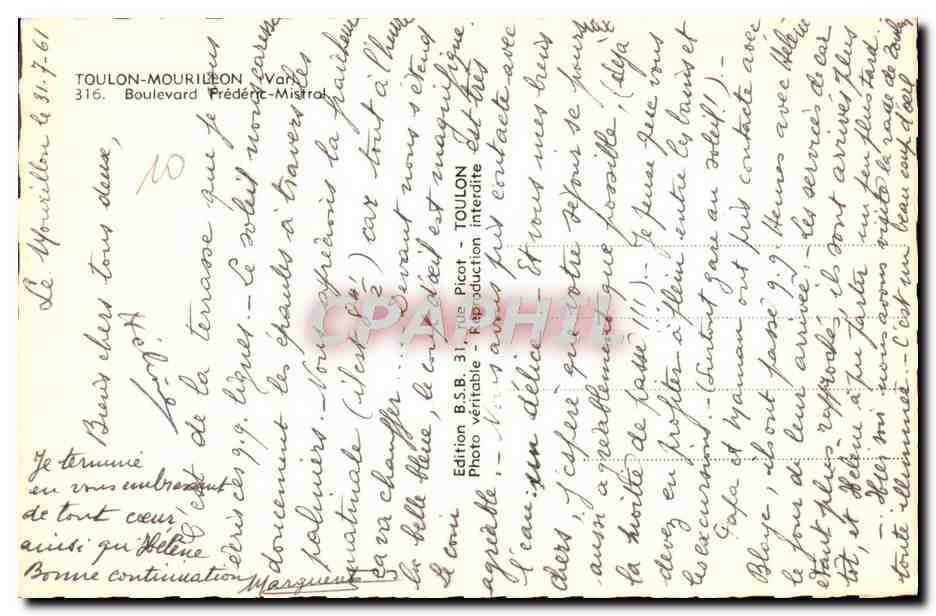 TOULON-MOURILLON (Var)
316. Boulevard Frédéric-Mistral
Edition B.S.B. 31, rue Picot - TOULON
Photo véritable - Reproduction interdite
CPAPHIL
10
Le Mourillon le 31-7-61
Biens chers tous deux,
C'est de la terrasse que je vous
écris ces q.q. lignes. - Le soleil nous caresse
doucement les épaules à travers les
palmiers. - Nous apprécions la fraîcheur
matinale (il est 8h 1/2) car tout à l'heure
ça va chauffer... Devant nous s'étend
la belle bleue, le coup d'œil est magnifique.
Le coin est très
agréable. - Nous avons pris contacte avec
l'eau, un délice - Et vous mes biens
chers, j'espère que votre séjour se poursuit
aussi agréablement que possible, (déjà
la moitié de passé !!!) - Je pense que vous
devez en profiter à plein entre les bains et
les excursions - (Surtout gare au soleil!) -
Papa et Maman ont pris contacte avec
Blaye, ils ont passé q.q. Heures avec Hélène
le jour de leur arrivée - les services de car
étant plus rapproché, ils sont arrivés plus
tôt, et Hélène a pu partir un peu plus tard.
- Hier soir nous avons visité la rade de Toulon
toute illuminée - C'est un beau coup d'œil
Je termine
en vous embrassant
de tout cœur
ainsi qu'Hélène
Bonne continuation
Marguerite